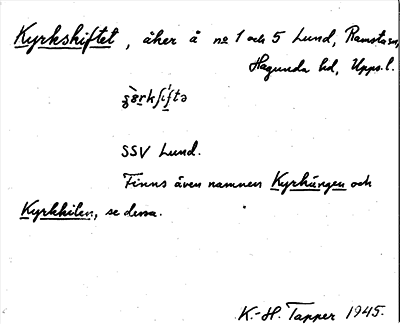 Kyrkskiftet, åker å no 1 och 5 Lund, Ramsta sn,
Hagunda hd, Upps.l.
SSV Lund.
Finns även namnen Kyrkängen och
Kyrkkilen, se dessa.
K.-H. Tapper 1945.